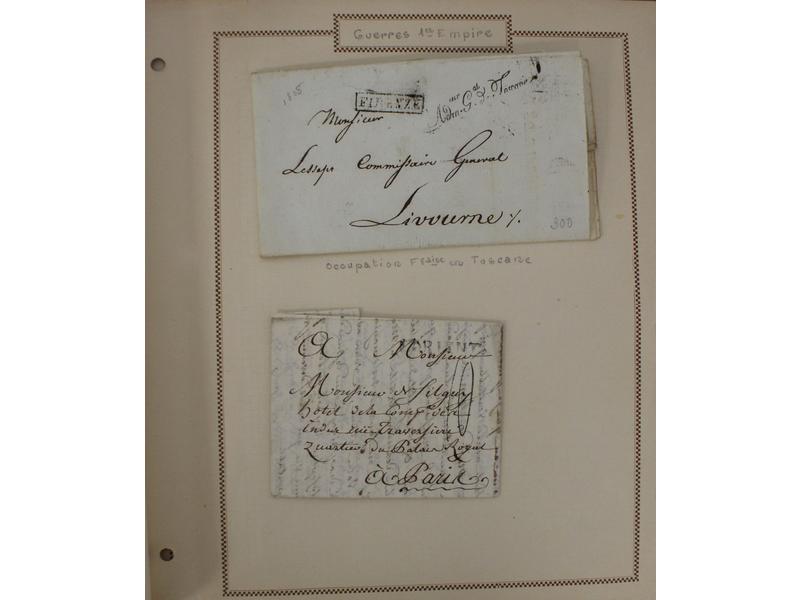 Guerres 1er Empire
1808
FIRENZE
Admon Gal de Toscane
Monsieur
Lesseps Commissaire General
Livourne /.
300
Occupation Fçaise en Toscane
LORIENT
A Monsieur
Monsieur de Silguy
hotel de la Compe des
indes rue traversiere
quartier du Palais Royal
à Paris